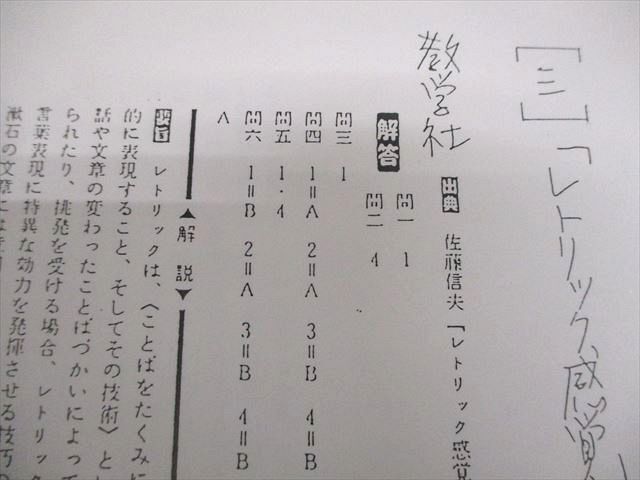 [三]「レトリック感覚
教学社
出典 佐藤信夫「レトリック感覚
解答
問一 1
問二 4
問三 1
問四 1＝A 2＝A 3＝B 4＝B
問五 1・4
問六 1＝B 2＝A 3＝B 4＝B
A
▲解説▼
要旨 レトリックは、〈ことばをたくみに
的に表現すること、そしてその技術〉と
話や文章の変わったことばづかいによって
られたり、挑発を受ける場合、レトリック
言葉表現に特異な効力を発揮させる技巧の
漱石の文章には